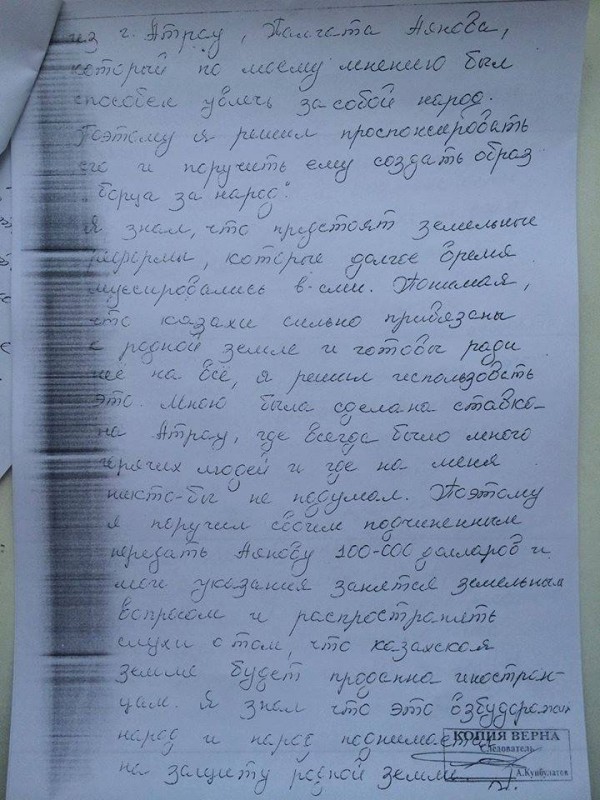 из г. Атрау, Талгата Аянова,
который по моему мнению был
способен увлечь за собой народ.
Поэтому я решил проспонсировать
его и поручить ему создать образ
борца за народ."
Я знал, что предстоят земельные
реформы, которые долгое время
муссировались в сми. Понимая,
что казахи сильно привязаны
к родной земле и готовы ради
неё на всё, я решил использовать
это. Мною была сделана ставка
на Атрау, где всегда было много
горячих людей и где на меня
никто-бы не подумал. Поэтому
я поручил своим подчиненным
передать Аянову 100-000 долларов и
мои указания занятся земельным
вопросом и распространять
слухи о том, что казахская
земля будет проданна иностран-
цам. Я знал что это взбудоражит
народ и народ поднимается
на защиту родной земли.
КОПИЯ ВЕРНА
Следователь
А.Кунбулатов